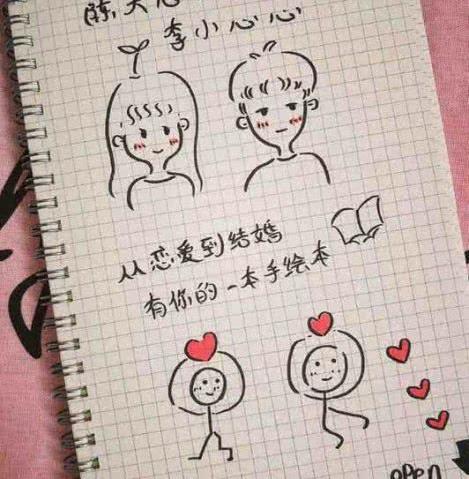 陈大心
李小心心
从恋爱到结婚
有你的一本手绘本
open